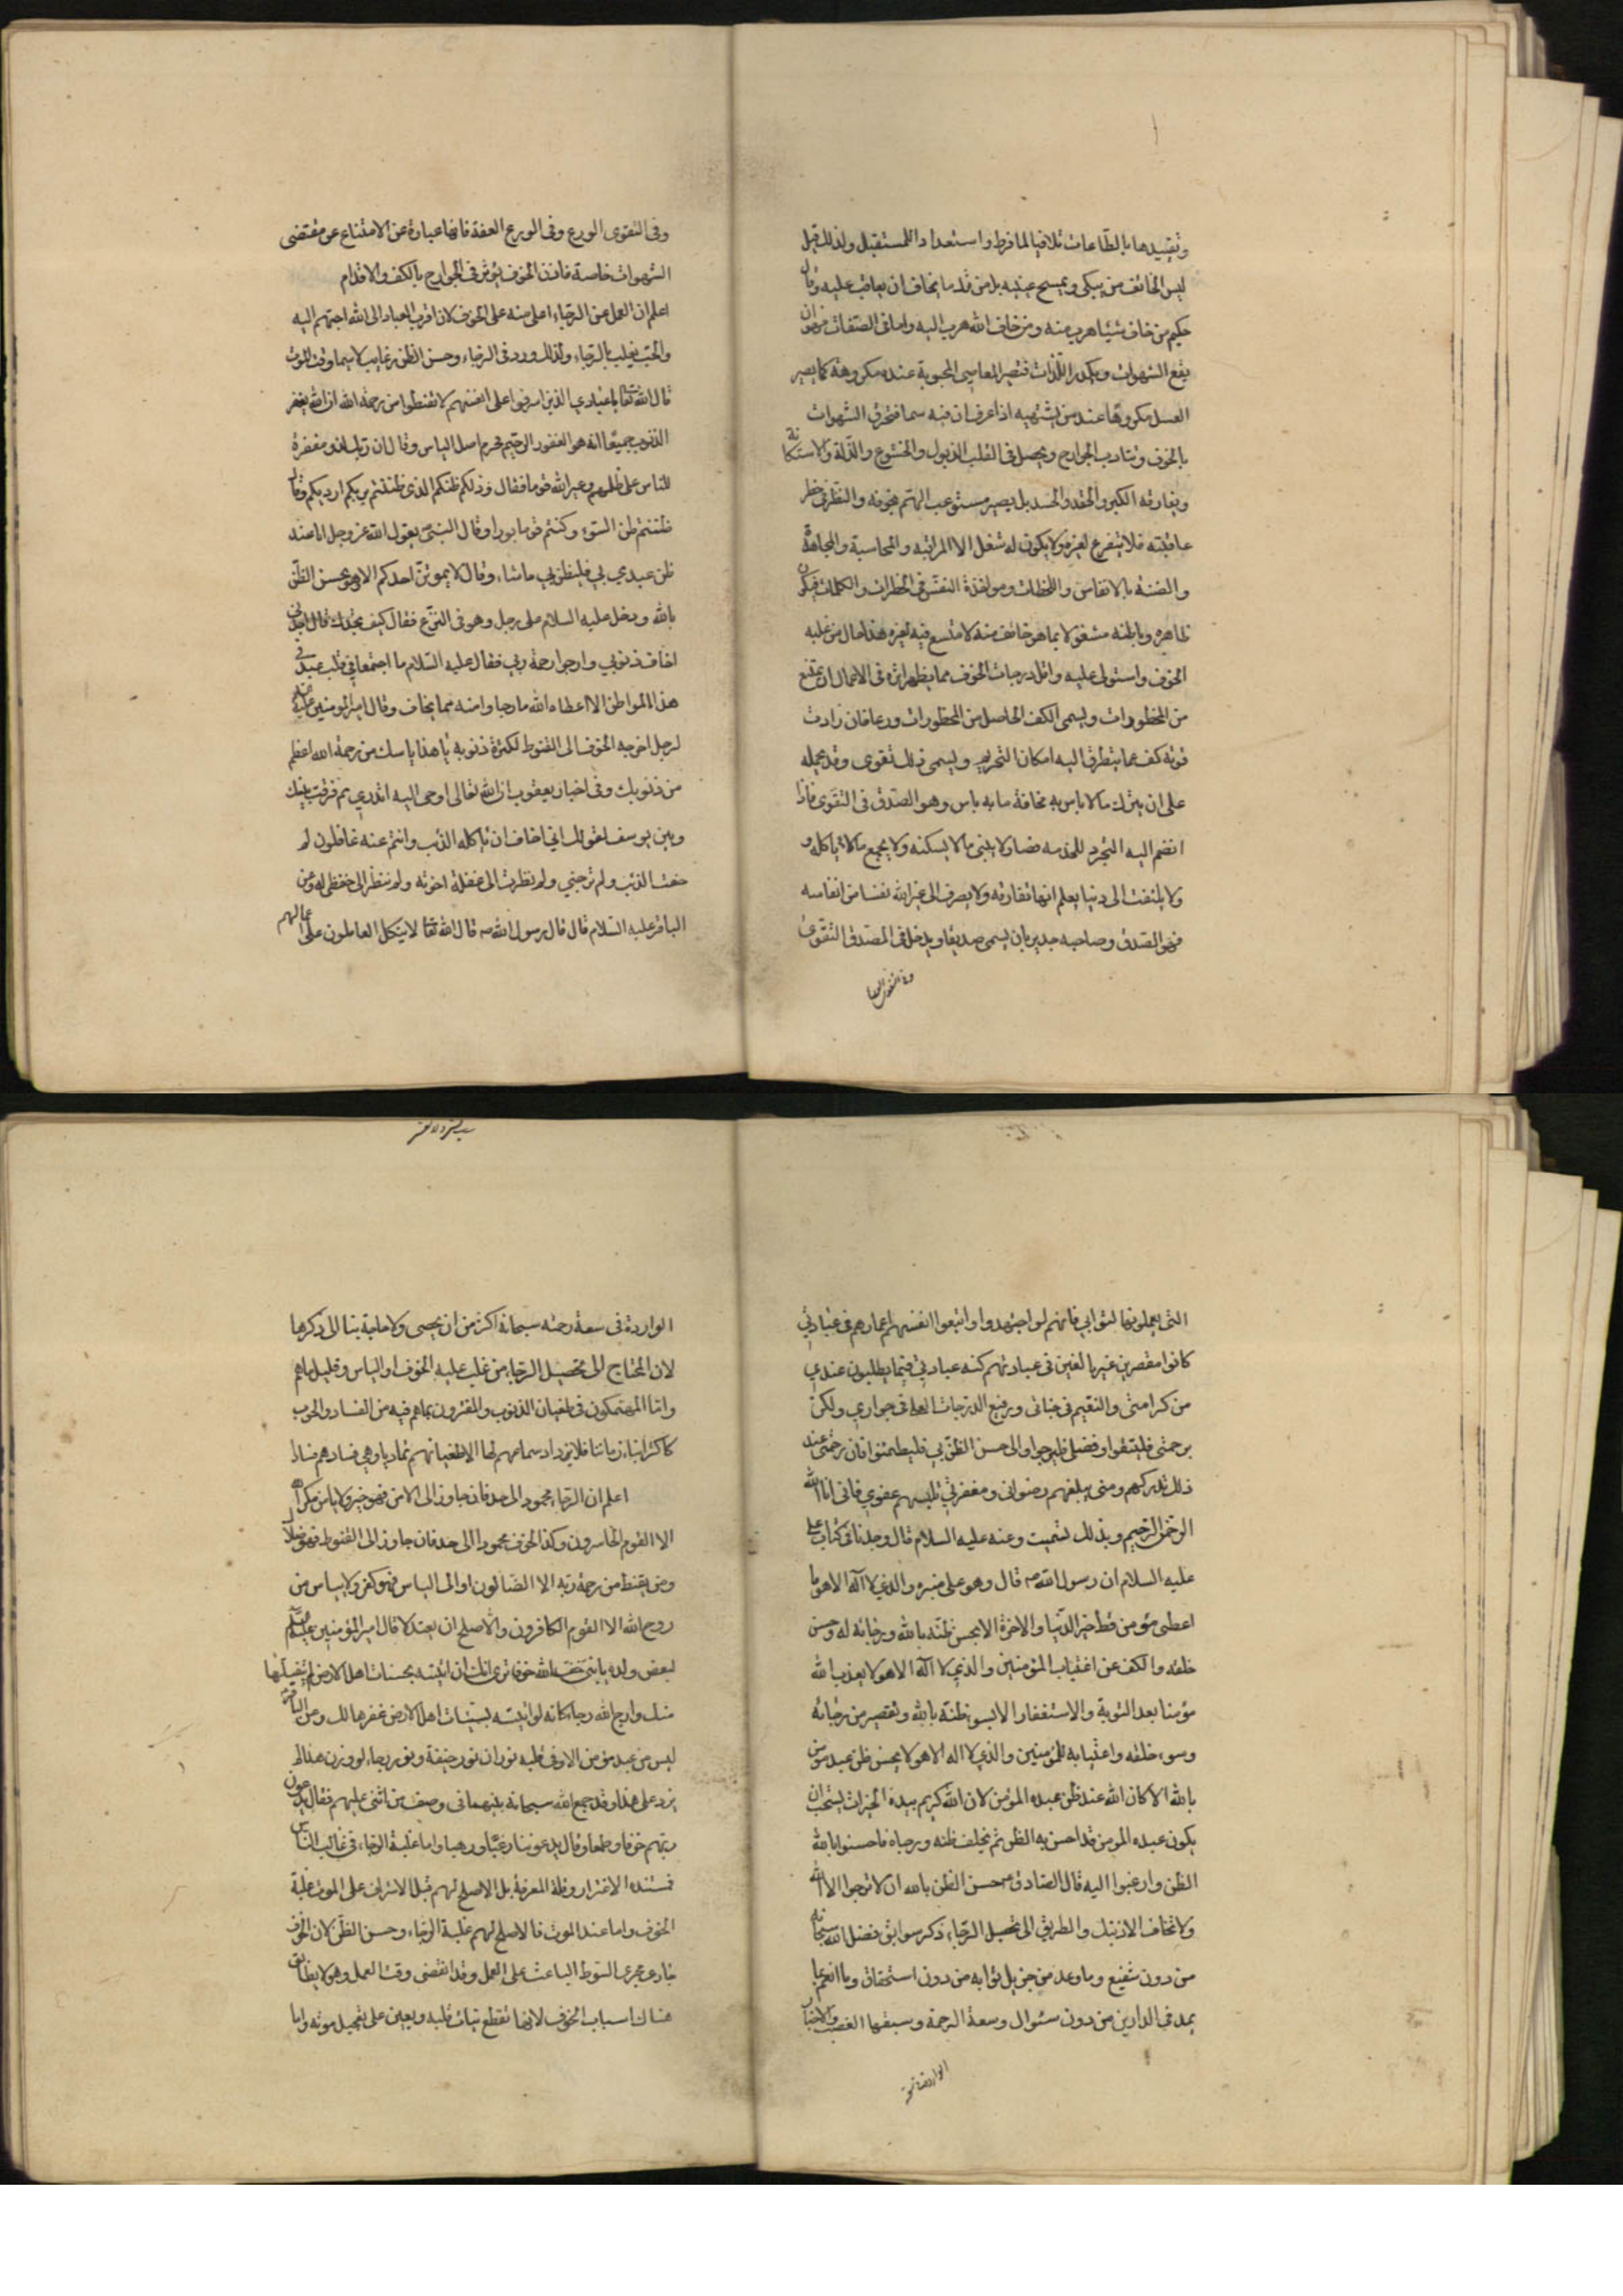 وتقييدها بالطاعات تلافيا لما فرط واستعدادا للمستقبل ولذلك قيل
ليس الخائف من يبكي ويمسح عينيه بل من ترك ما يخاف ان يعاقب عليه وقال
حكيم من خاف شيئا هرب منه ومن خاف الله هرب اليه واما في الصفات فهو ان
يقمع الشهوات ويكدر اللذات فتصير المعاصي المحبوبة عنده مكروهة كما يصير
العسل مكروها عند من يشتهيه اذا عرف ان فيه سما فتحرق الشهوات
بالخوف وتتادب الجوارح ويحصل في القلب الذبول والخشوع والذلة والاستكانة
ويفارقه الكبر والحقد والحسد بل يصير مستوعب الهم بخوفه والنظر في خطر
عاقبته فلا يتفرغ لغيره ولا يكون له شغل الا المراقبة والمحاسبة والمجاهدة
والضنة بالانفاس واللحظات ومواخذة النفس في الخطرات والكلمات فيكون
ظاهره وباطنه مشغولا بما هو خائف منه لا متسع فيه لغيره هذا حال من غلبه
الخوف واستولى عليه واقل درجات الخوف مما يظهر اثره في الاعمال ان يمتنع
من المحظورات ويسمى الكف الحاصل من المحظورات ورعا فان زادت
قوته كف عما يتطرق اليه امكان التحريم ويسمى ذلك تقوى وقد يحمله
على ان يترك ما لا باس به مخافة ما به باس وهو الصدق في التقوى فاذا
انضم اليه التجرد للخدمة فصار لا يبني ما لا يسكنه ولا يجمع ما لا ياكله و
ولا يلتفت الى دنيا يعلم انها تفارقه ولا يصرف الى غير الله نفسا من انفاسه
فهو الصدق وصاحبه جدير بان يسمى صديقا ويدخل في الصدق التقوى
وفي التقوى الورع
وفي التقوى الورع وفي الورع العفة فانها عبارة عن الامتناع عن مقتضى
الشهوات خاصة فاذن الخوف يؤثر في الجوارح بالكف والاقدام
اعلم ان العمل عن الرجاء اعلى منه على الخوف لان اقرب العباد الى الله احبهم اليه
والحب يغلب بالرجاء ولذلك ورد في الرجاء وحسن الظن رغايب لا سيما وقت الموت
قال الله تعالى يا عبادي الذين اسرفوا على انفسهم لا تقنطوا من رحمة الله ان الله يغفر
الذنوب جميعا انه هو الغفور الرحيم فحرم اصل الياس وقال ان ربك لذو مغفرة
للناس على ظلمهم وعير الله قوما فقال وذلكم ظنكم الذي ظننتم بربكم ارديكم وقال
ظننتم ظن السوء وكنتم قوما بورا وقال النبي ص يقول الله عز وجل انا عند
ظن عبدي بي فليظن بي ماشاء وقال لا يموتن احدكم الا وهو يحسن الظن
بالله ودخل عليه السلام على رجل وهو في النزع فقال كيف تجدك قال اجدني
اخاف ذنوبي وارجوا رحمة ربي فقال عليه السلام ما اجتمعا في قلب عبد في
هذا المواطن الا اعطاه الله ما رجا وامنه مما يخاف وقال امير المؤمنين عليه السلم
لرجل اخرجه الخوف الى القنوط لكثرة ذنوبه يا هذا ياسك من رحمة الله اعظم
من ذنوبك وفي اخبار يعقوب ان الله تعالى اوحى اليه اتدري لم فرقت بينك
وبين يوسف لقولك اني اخاف ان ياكله الذئب وانتم عنه غافلون لم
خفت الذئب ولم ترجني ولم نظرت الى غفلة اخوته ولم تنظر الى حفظي له وعن
الباقر عليه السلام قال قال رسول الله ص قال الله تعالى لا يتكل العاملون على اعمالهم
التي يعملونها لثوابي فانهم لو اجتهدوا واتبعوا انفسهم اعمارهم في عبادتي
كانوا مقصرين غير بالغين في عبادتهم كنه عبادتي فيما يطلبون عندي
من كرامتي والنعيم في جناتي ورفيع الدرجات العلى في جواري ولكن
برحمتي فليثقوا وفضلي فليرجوا والى حسن الظن بي فليطمئنوا فان رحمتي عند
ذلك تدركهم ومني يبلغهم رضواني ومغفرتي تلبسهم عفوي فاني انا الله
الرحمن الرحيم وبذلك تسميت وعنه عليه السلام قال وجدنا في كتاب علي
عليه السلام ان رسول الله ص قال وهو على منبره والذي لا اله الا هو ما
اعطي مؤمن قط خير الدنيا والاخرة الا بحسن ظنه بالله ورجائه له وحسن
خلقه والكف عن اغتياب المؤمنين والذي لا اله الا هو لا يعذب الله
مؤمنا بعد التوبة والاستغفار الا بسوء ظنه بالله وتقصير من رجائه
وسوء خلقه واغتيابه للمؤمنين والذي لا اله الا هو لا يحسن ظن عبد مؤمن
بالله الا كان الله عند ظن عبده المؤمن لان الله كريم بيده الخيرات يستحيي ان
يكون عبده المومن قد احسن به الظن ثم يخلف ظنه ورجاه فاحسنوا بالله
الظن وارغبوا اليه قال الصادق ع حسن الظن بالله ان لا ترجوا الا الله
ولا تخاف الا ذنبك والطريق الى تحصيل الرجاء ذكر سوابق فضل الله سبحانه
من دون شفيع وما وعد من جزيل ثوابه من دون استحقاق وما انعم بما
يمد في الدارين من دون سئوال وسعة الرحمة وسبقها الغضب والاخبار
الواردة في سعة
الواردة في سعة رحمته سبحانه اكثر من ان يحصى ولا حاجة بنا الى ذكرها
لان المحتاج الى تحصيل الرجاء من غلب عليه الخوف او الياس وقليل ما هم
واما المنهمكون في طغيان الذنوب والمغرورون بما هم فيه من الفساد والحوب
كاكثر ابناء زماننا فلا يزداد سماعهم لها الا طغيانهم تماديا وهي فسادهم فسادا
اعلم ان الرجاء محمود الى حد فان جاوز الى الامن فهو خسر ولا يامن مكر الله
الا القوم الخاسرون وكذا الخوف محمود الى حد فان جاوز الى القنوط فهو ضلال
ومن يقنط من رحمة ربه الا الضالون او الى الياس فهو كفر ولا يياس من
روح الله الا القوم الكافرون والاصلح ان يعتدلا قال امير المؤمنين عليه السلم
لبعض ولده يا بني خف الله خوفا ترى انك ان اتيته بحسنات اهل الارض لم يتقبلها
منك وارج الله رجاء كانه لو اتيته بسيئات اهل الارض غفرها لك وعن الباقر
ليس من عبد مؤمن الا وفي قلبه نوران نور خيفة ونور رجاء لو وزن هذا لم
يزد على هذا وقد جمع الله سبحانه بينهما في وصف من اثنى عليهم فقال يدعون
ربهم خوفا وطمعا وقال يدعوننا رغبا ورهبا واما غلبة الرجاء في غالب الناس
فمستنده الاغترار وقلة المعرفة بل الاصلح لهم قبل الاشراف على الموت غلبة
الخوف واما عند الموت فالاصلح لهم غلبة الرجاء وحسن الظن لان الخوف
جار مجرى السوط الباعث على العمل وقد انقضى وقت العمل وهو لا يطاق
هناك اسباب الخوف لانها تقطع نياط قلبه ويعين على تعجيل موته واما